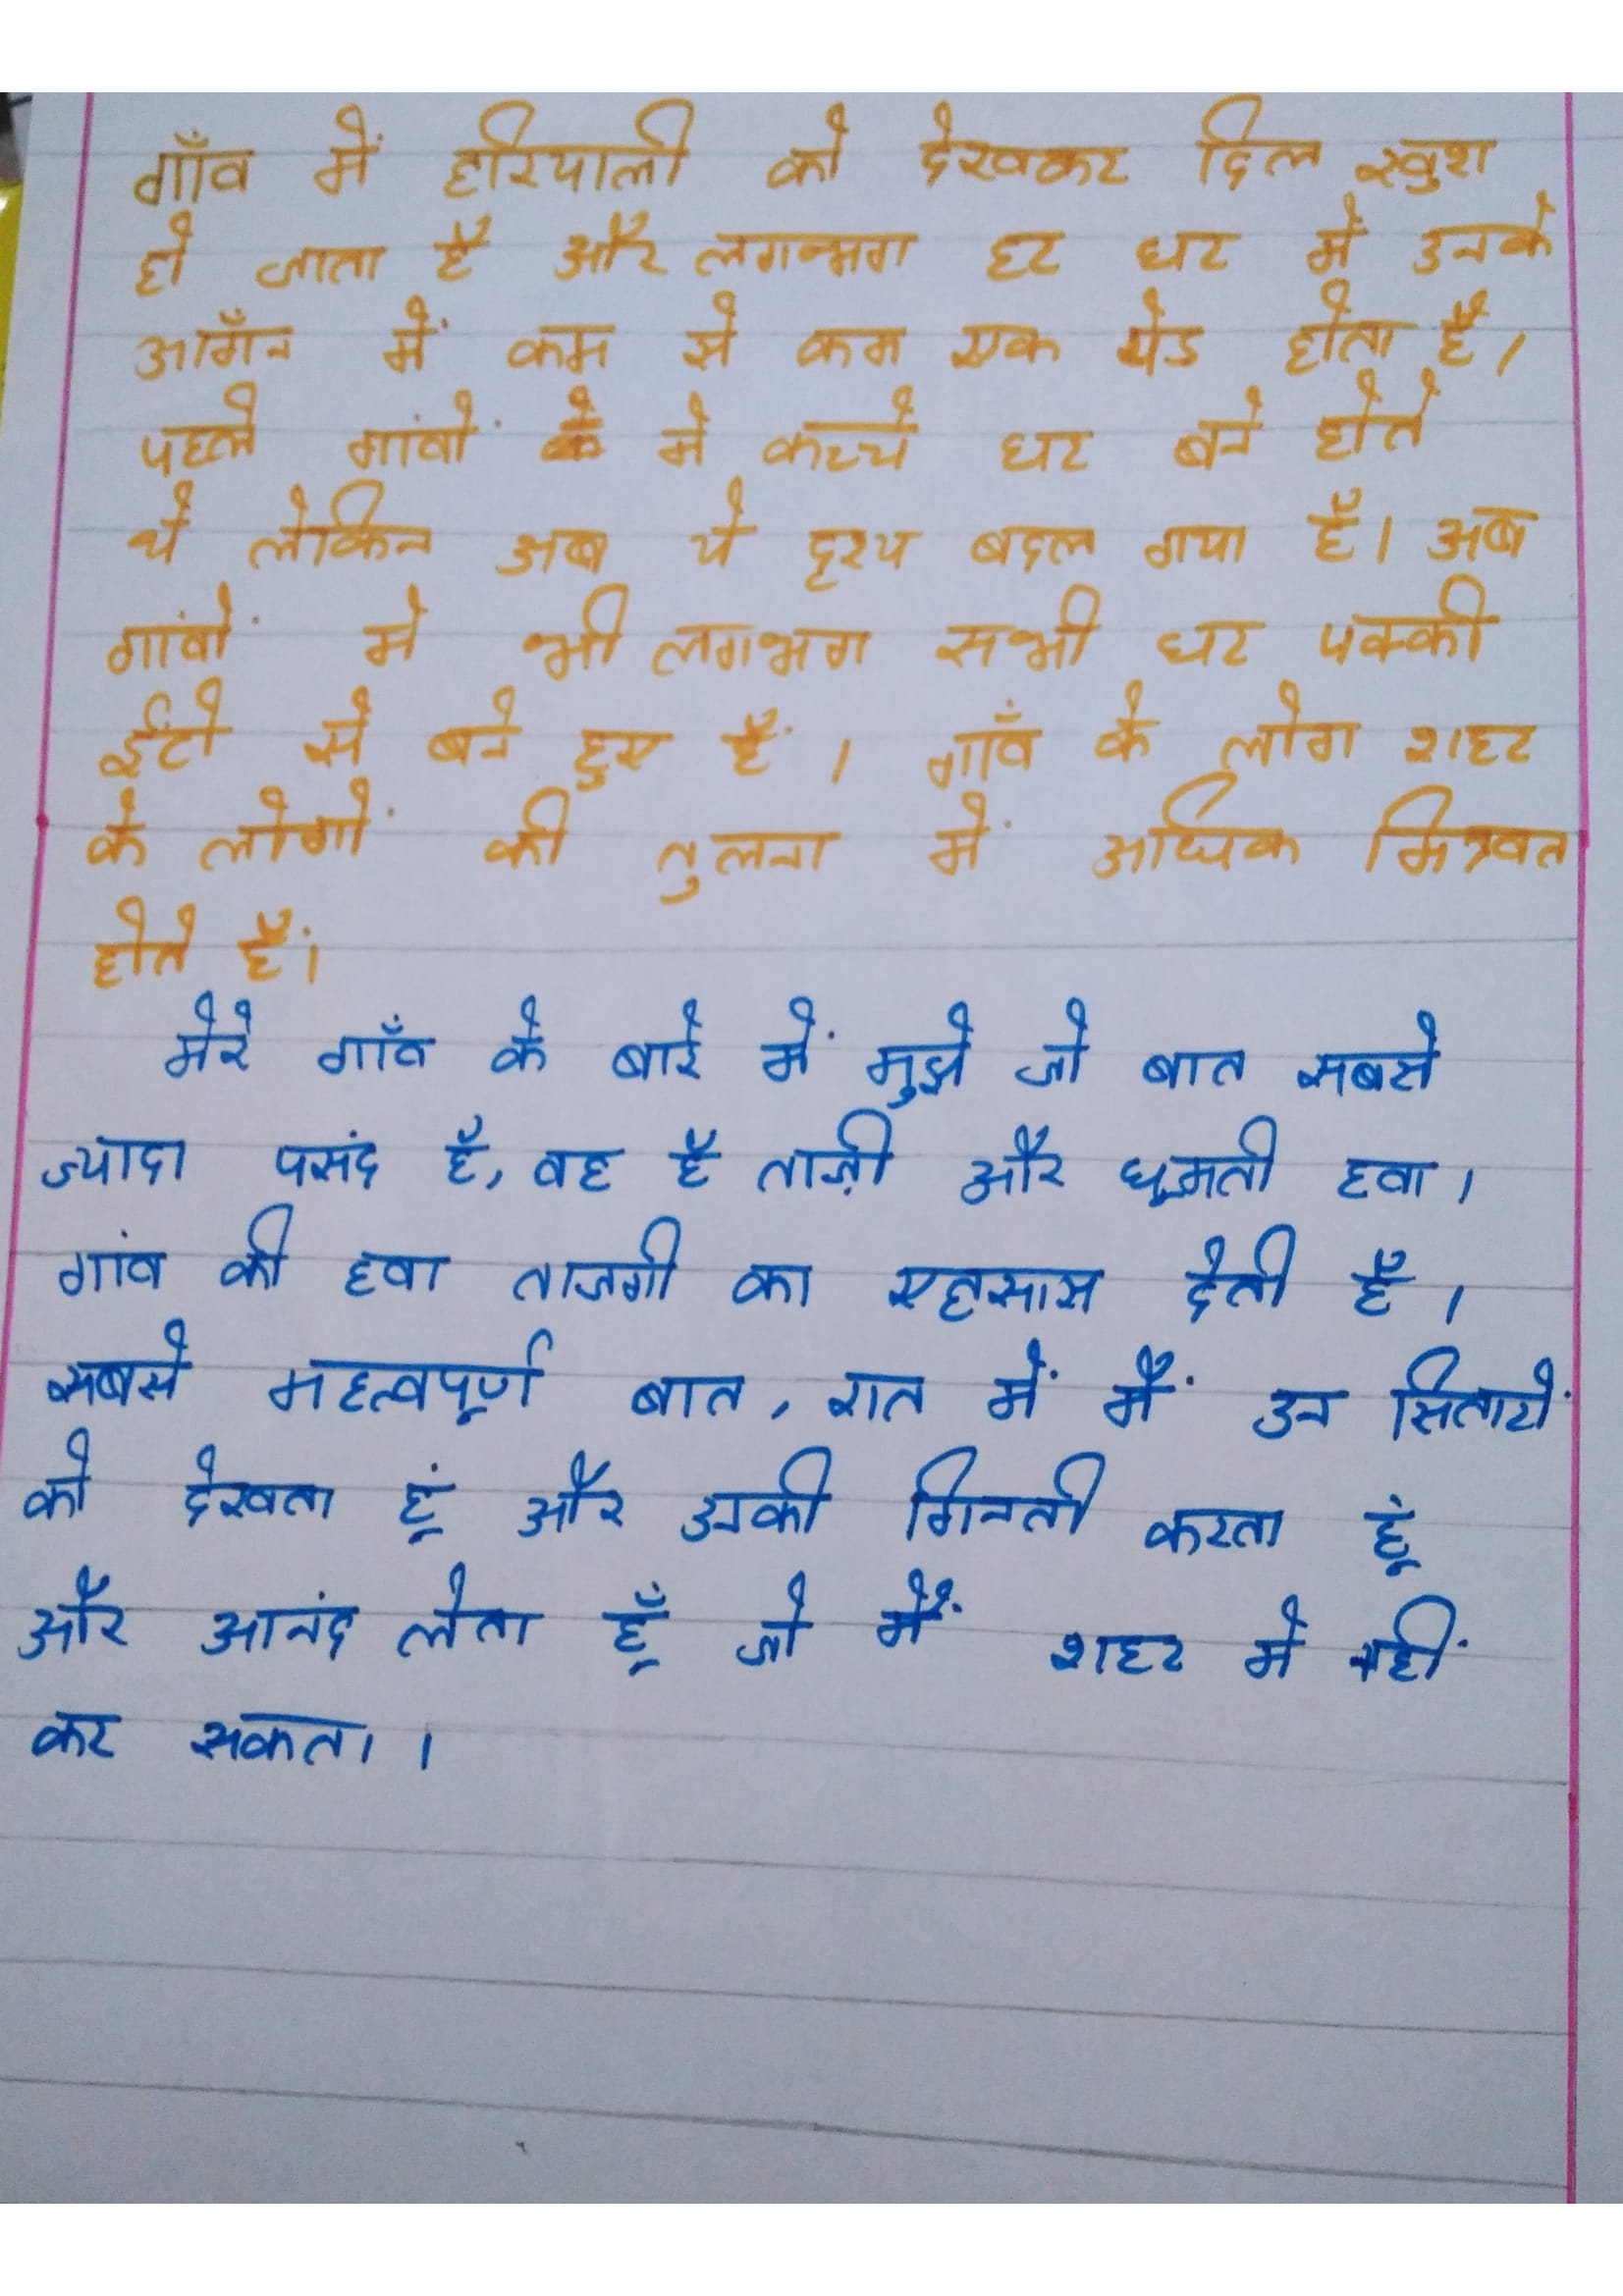 गाँव में हरियाली को देखकर दिल खुश
हो जाता है और लगभग हर घर में उनके
आगँन में कम से कम एक पेड होता है।
पहले गांवों में कच्चे घर बने होते
थे लेकिन अब ये दृश्य बदल गया है। अब
गांवों मे भी लगभग सभी घर पक्की
ईंटो से बने हुए हैं । गाँव के लोग शहर
के लोगों की तुलना में अधिक मित्रवत
होते हैं।
मेरे गाँव के बारे में मुझे जो बात सबसे
ज्यादा पसंद है, वह है ताज़ी और घूमती हवा ।
गांव की हवा ताजगी का एहसास देती है ।
सबसे महत्वपूर्ण बात, रात में मैं उन सितारों
को देखता हूं और उनकी गिनती करता हूं
और आनंद लेता हूँ जो मैं शहर मे नहीं
कर सकता ।